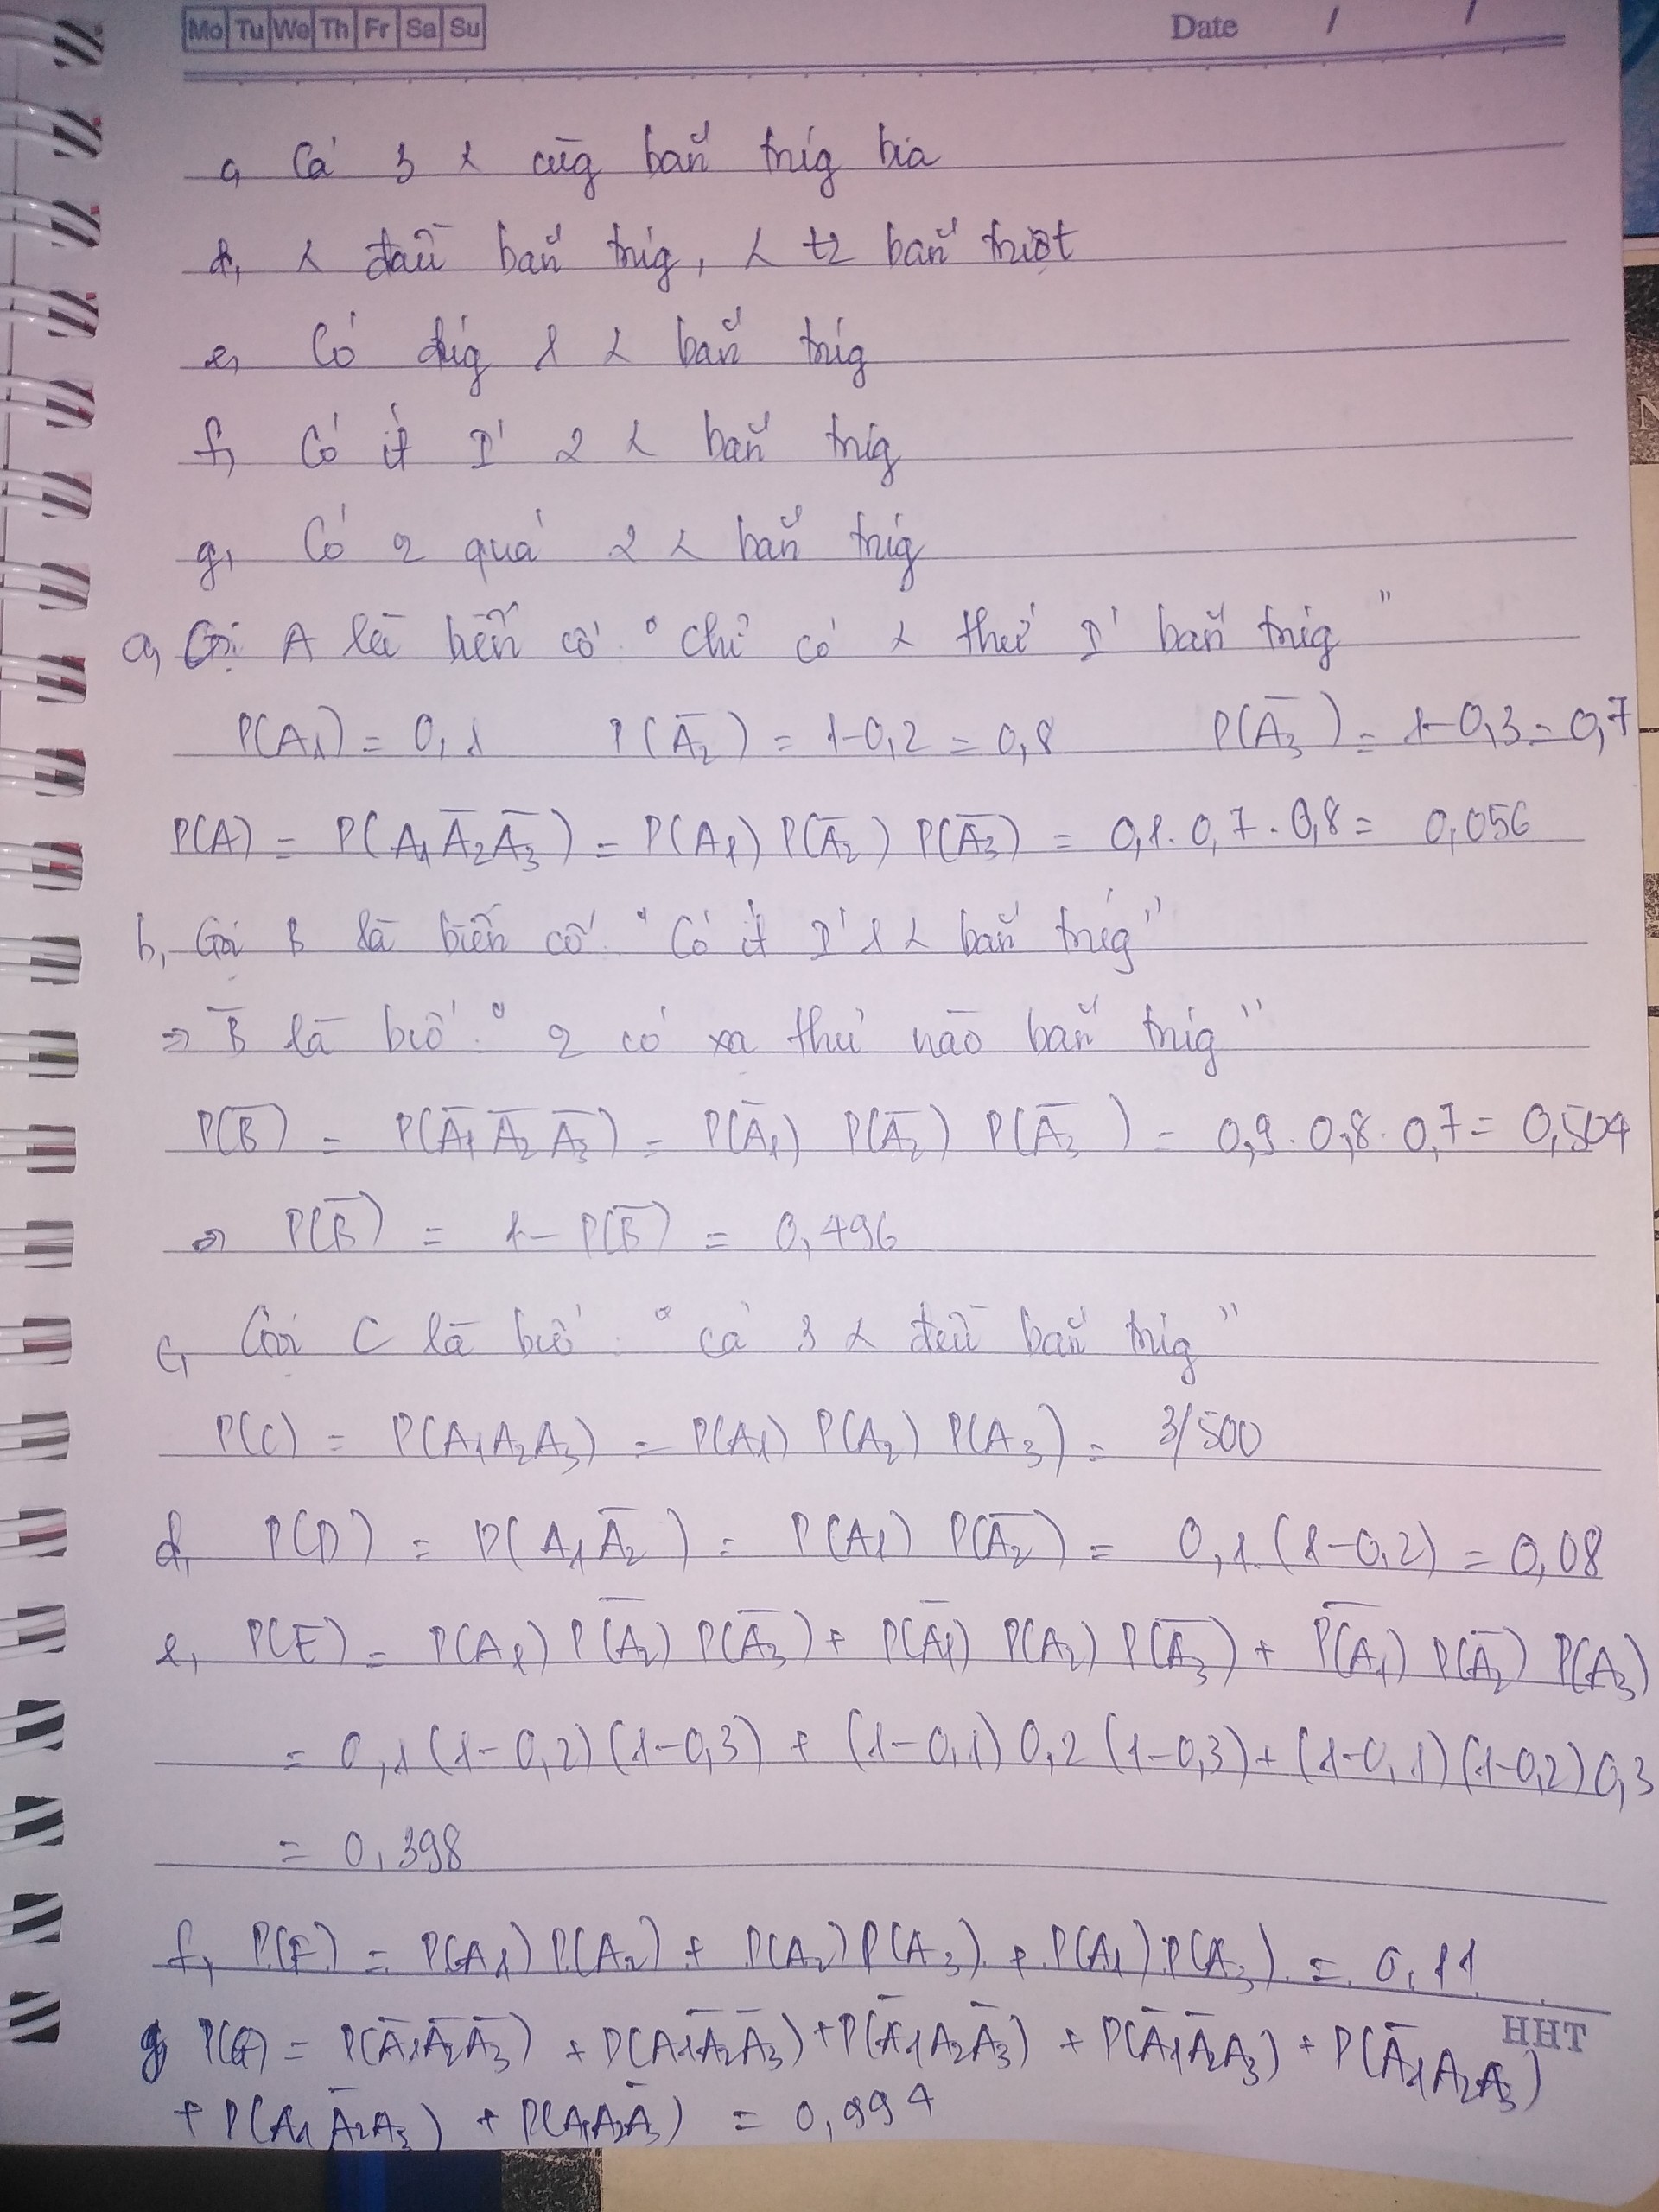 Mo Tu We Th Fr Sa Su Date / /
c, Cả 3 λ cùg bắn tríg bia
d, λ đầu bắn tríg, λ t2 bắn trượt
e, Có đúg 1 λ bắn tríg
f, Có ít I' 2 λ bắn tríg
g, Có 2 quá 2 λ bắn tríg
a, Gọi A là biến cố: "Chỉ có λ thứ I' bắn tríg"
P(A₁) = 0,1 P(A̅₂) = 1-0,2 = 0,8 P(A̅₃) = 1-0,3 = 0,7
P(A) = P(A₁A̅₂A̅₃) = P(A₁) P(A̅₂) P(A̅₃) = 0,1.0,7.0,8 = 0,056
b, Gọi B là biến cố: "Có ít I' 1 λ bắn tríg"
⇒ B̅ là bcố: "2 có xạ thủ nào bắn tríg"
P(B̅) = P(A̅₁A̅₂A̅₃) = P(A̅₁) P(A̅₂) P(A̅₃) = 0,9.0,8.0,7 = 0,504
⇒ P(B̅) = 1-P(B̅) = 0,496
c, Gọi C là bcố: "cả 3 λ đều bắn tríg"
P(C) = P(A₁A₂A₃) = P(A₁) P(A₂) P(A₃) = 3/500
d, P(D) = P(A₁A̅₂) = P(A₁) P(A̅₂) = 0,1.(1-0,2) = 0,08
e, P(E) = P(A₁) P(A̅₂) P(A̅₃) + P(A̅₁) P(A₂) P(A̅₃) + P(A̅₁) P(A̅₂) P(A₃)
= 0,1(1-0,2)(1-0,3) + (1-0,1)0,2(1-0,3) + (1-0,1)(1-0,2)0,3
= 0,398
f, P(F) = P(A₁) P(A₂) + P(A₂) P(A₃) + P(A₁) P(A₃) = 0,11
HHT
g, P(G) = P(A̅₁A̅₂A̅₃) + P(A₁A̅₂A̅₃) + P(A̅₁A₂A̅₃) + P(A̅₁A̅₂A₃) + P(A̅₁A₂A₃)
+ P(A₁A̅₂A₃) + P(A₁A₂A̅₃) = 0,994